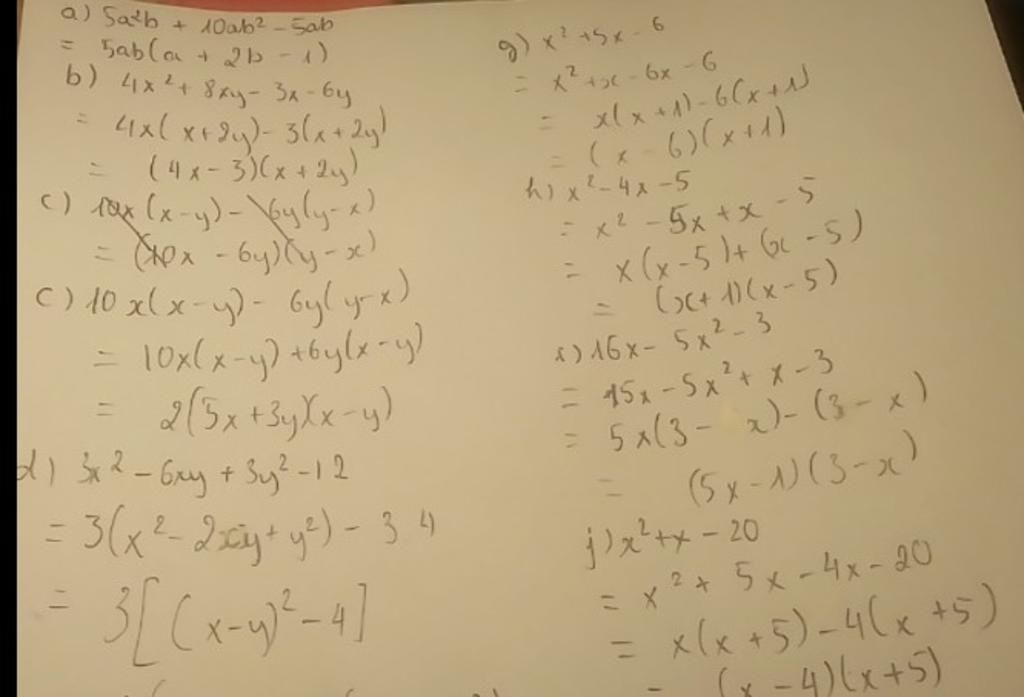 a) 5a²b + 10ab² - 5ab
= 5ab(a + 2b - 1)
b) 4x² + 8xy - 3x - 6y
= 4x(x + 2y) - 3(x + 2y)
= (4x - 3)(x + 2y)
c) 10x(x - y) - 6y(y - x)
= (10x - 6y)(y - x)
c) 10x(x - y) - 6y(y - x)
= 10x(x - y) + 6y(x - y)
= 2(5x + 3y)(x - y)
d) 3x² - 6xy + 3y² - 12
= 3(x² - 2xy + y²) - 3 4
= 3[(x - y)² - 4]
g) x² + 5x - 6
= x² + x - 6x - 6
= x(x + 1) - 6(x + 1)
= (x - 6)(x + 1)
h) x² - 4x - 5
= x² - 5x + x - 5
= x(x - 5) + (x - 5)
= (x + 1)(x - 5)
i) 16x - 5x² - 3
= 15x - 5x² + x - 3
= 5x(3 - x) - (3 - x)
= (5x - 1)(3 - x)
j) x² + x - 20
= x² + 5x - 4x - 20
= x(x + 5) - 4(x + 5)
= (x - 4)(x + 5)